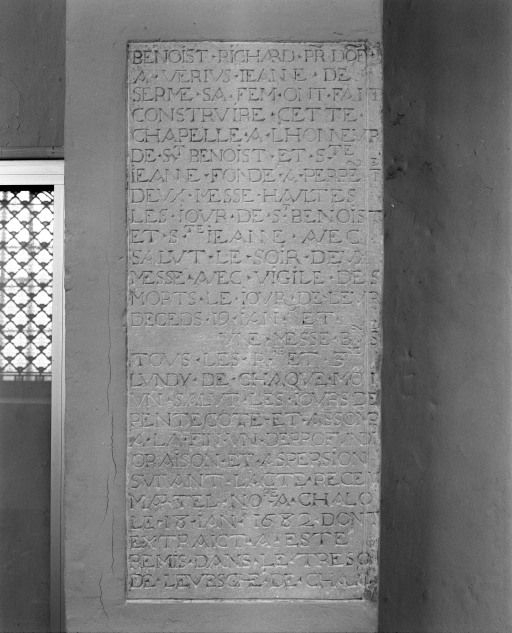 BENOIST · RICHARD · PR DOF
A · VERIVS · IEANNE · DE
SERME · SA · FEM · ONT · FAIT
CONSTRVIRE · CETTE ·
CHAPELLE · A · LHONNEVR
DE · ST BENOIST · ET · STE
IEANNE · FONDE · A · PERPET
DEVX · MESSE · HAVLTES
LES · IOVR · DE · ST BENOIST
ET · STE IEANE · AVEC
SALVT · LE · SOIR · DEVX
MESSE · AVEC · VIGILE · DES
MORTS · LE · IOVR · DE · LEVR
DECEDS · 19 · IAN · ET
VNE · MESSE · BAS
TOVS · LES · ET
LVNDY · DE · CHAQVE · MOI
VN · SALVT · LES · IOVRS · DE
PENTECOTE · ET · ASSOMP
A · LA · FIN · VN · DEPROFVNDI
ORAISON · ET · ASPERSION
SVIVANT · LACTE · RECE
MARTEL · NORE · A · CHALO
LE · 16 · IAN · 1682 · DONT
EXTRAICT · A · ESTE
REMIS · DANS · LE · TRESO
DE · LEVESCHE · DE · CHALO